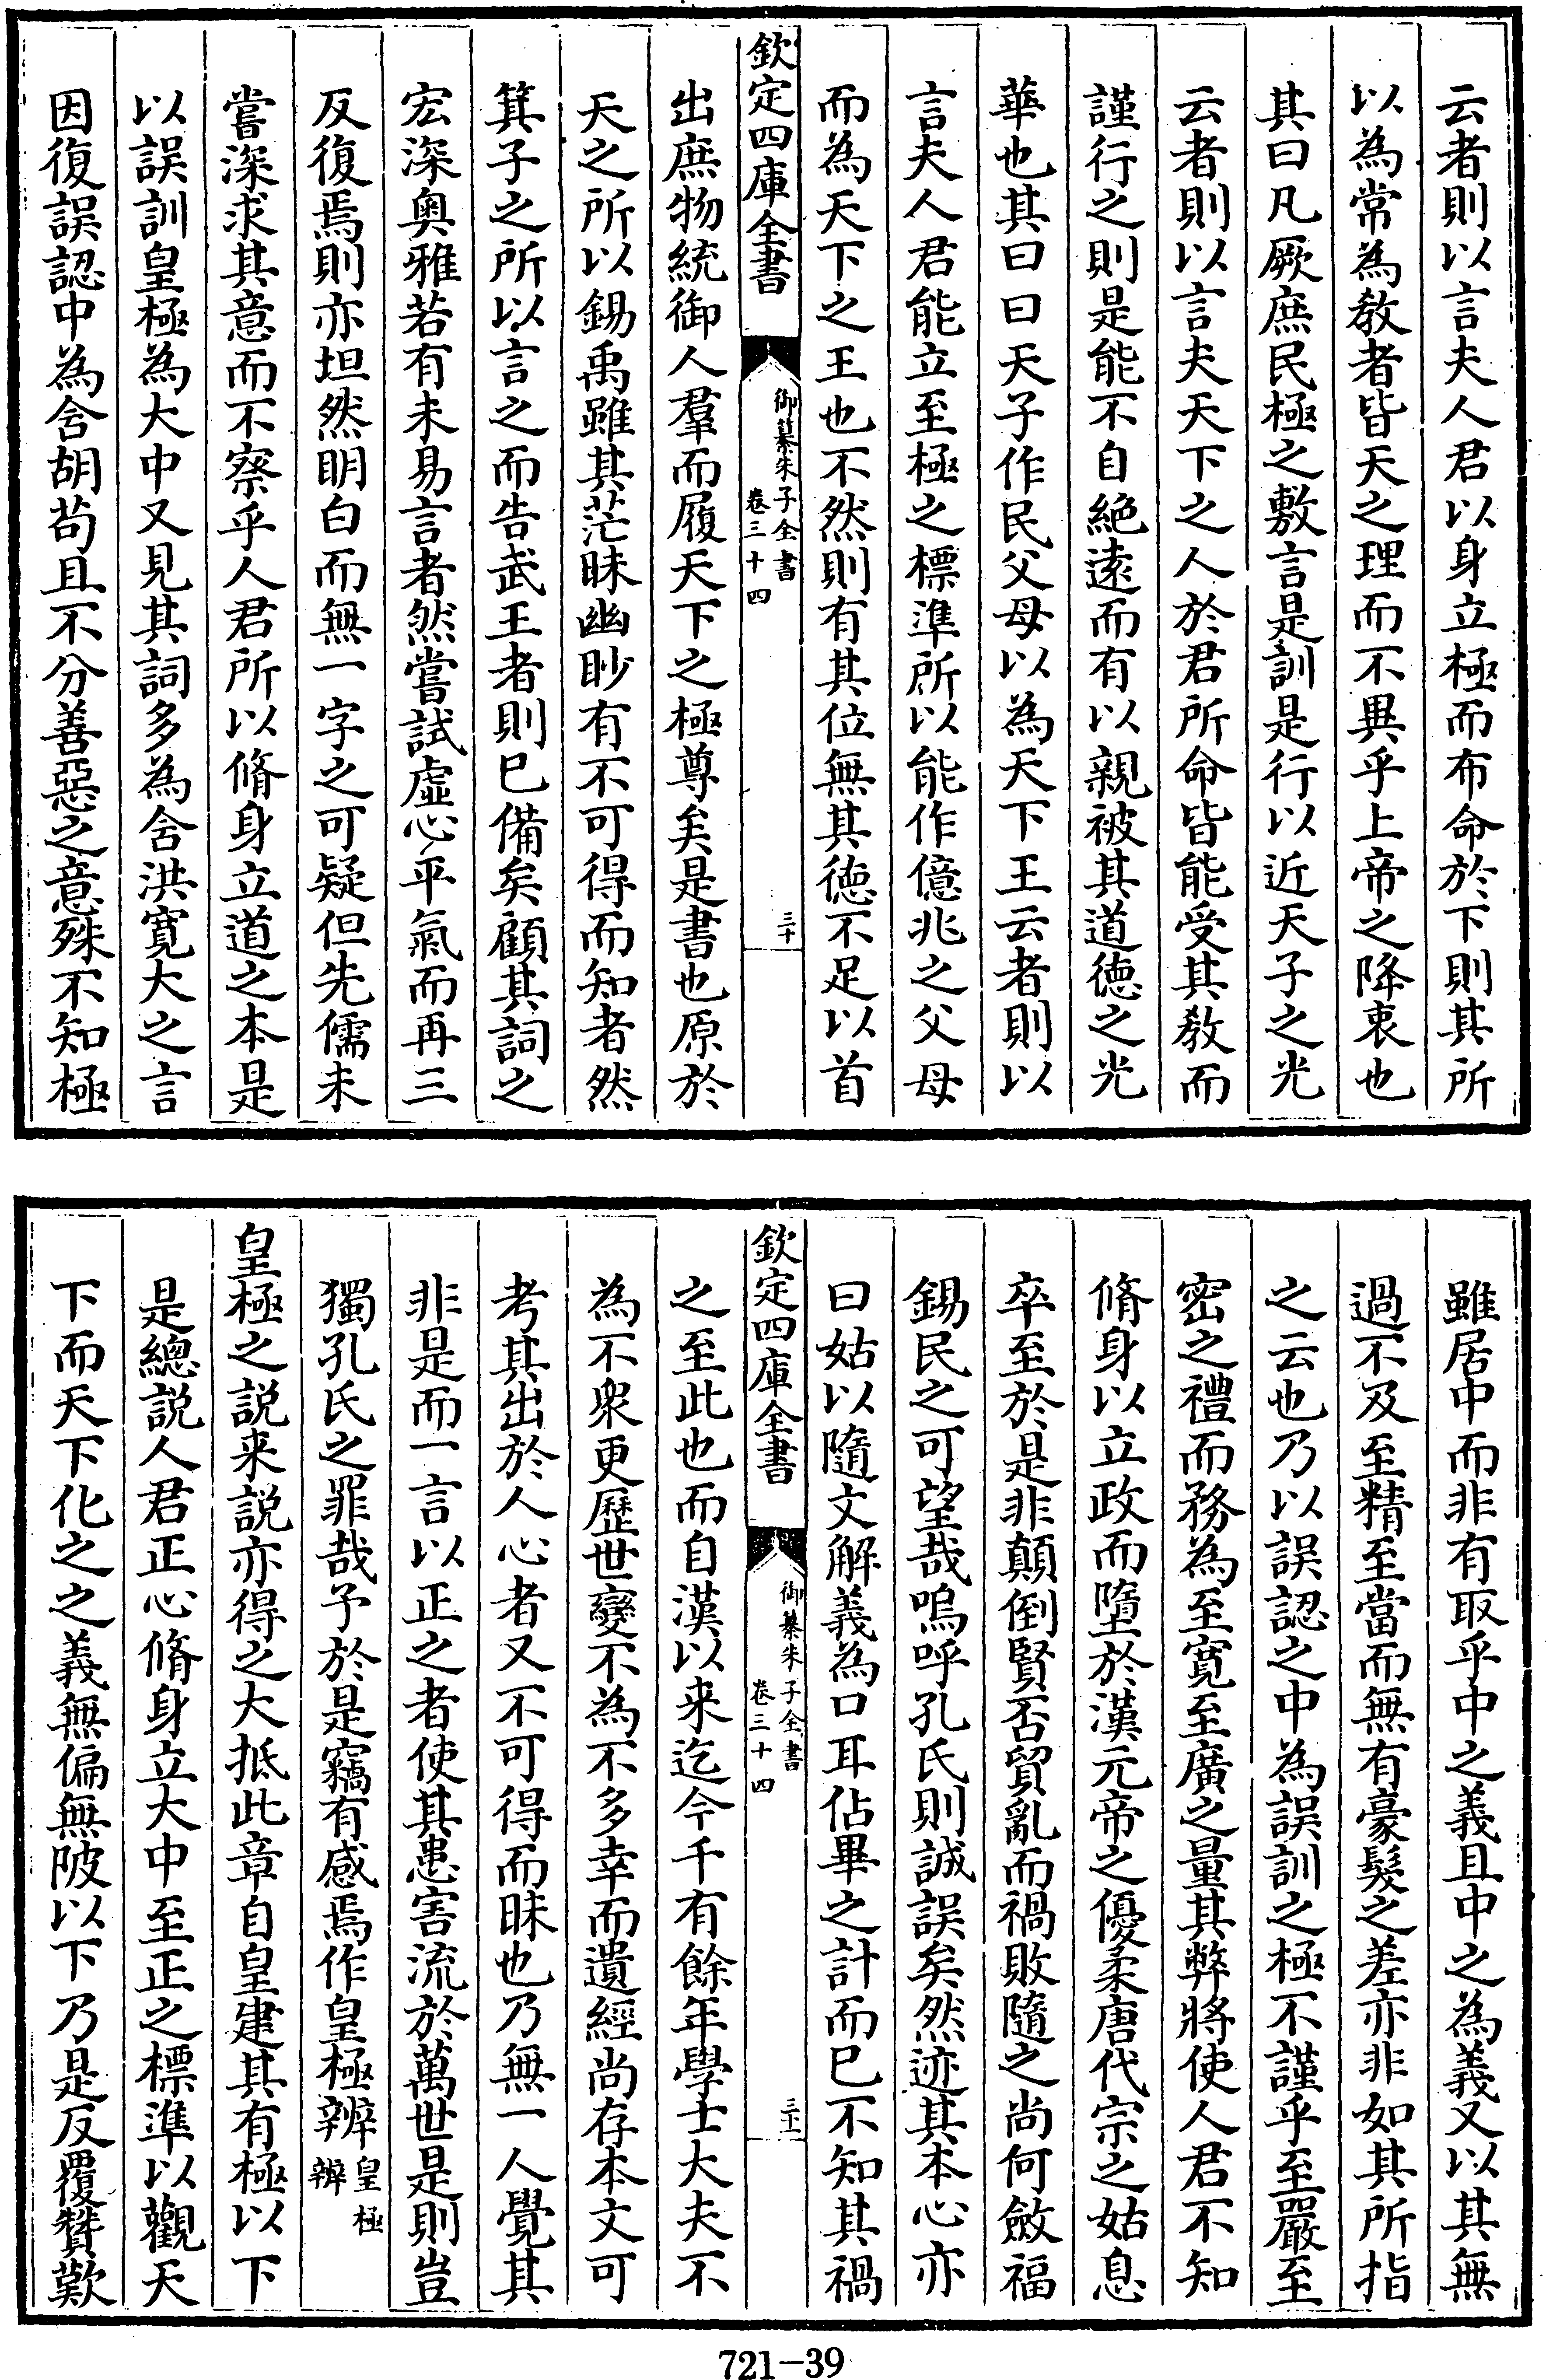 云者則以言夫人君以身立極而布命於下則其所
以為常為教者皆天之理而不異乎上帝之降衷也
其曰凡厥庶民極之敷言是訓是行以近天子之光
云者則以言夫天下之人於君所命皆能受其教而
謹行之則是能不自絕遠而有以親被其道德之光
華也其曰曰天子作民父母以為天下王云者則以
言夫人君能立至極之標準所以能作億兆之父母
而為天下之王也不然則有其位無其德不足以首
欽定四庫全書
御纂朱子全書
卷三十四
三十
出庶物統御人羣而履天下之極尊矣是書也原於
天之所以錫禹雖其茫昧幽眇有不可得而知者然
箕子之所以言之而告武王者則已備矣顧其詞之
宏深奥雅若有未易言者然嘗試虛心平氣而再三
反復焉則亦坦然明白而無一字之可疑但先儒未
嘗深求其意而不察乎人君所以脩身立道之本是
以誤訓皇極為大中又見其詞多為含洪寛大之言
因復誤認中為含胡苟且不分善惡之意殊不知極
雖居中而非有取乎中之義且中之為義又以其無
過不及至精至當而無有豪髮之差亦非如其所指
之云也乃以誤認之中為誤訓之極不謹乎至嚴至
密之禮而務為至寛至廣之量其弊將使人君不知
脩身以立政而墮於漢元帝之優柔唐代宗之姑息
卒至於是非顛倒賢否貿亂而禍敗隨之尚何斂福
錫民之可望哉嗚呼孔氏則誠誤矣然迹其本心亦
曰姑以隨文解義為口耳佔畢之計而已不知其禍
欽定四庫全書
御纂朱子全書
卷三十四
三十一
之至此也而自漢以来迄今千有餘年學士大夫不
為不衆更歷世變不為不多幸而遺經尚存本文可
考其出於人心者又不可得而昧也乃無一人覺其
非是而一言以正之者使其患害流於萬世是則豈
獨孔氏之罪哉予於是竊有感焉作皇極辨皇極辨
皇極之説来説亦得之大抵此章自皇建其有極以下
是總説人君正心脩身立大中至正之標準以觀天
下而天下化之之義無偏無陂以下乃是反覆贊歎
721-39